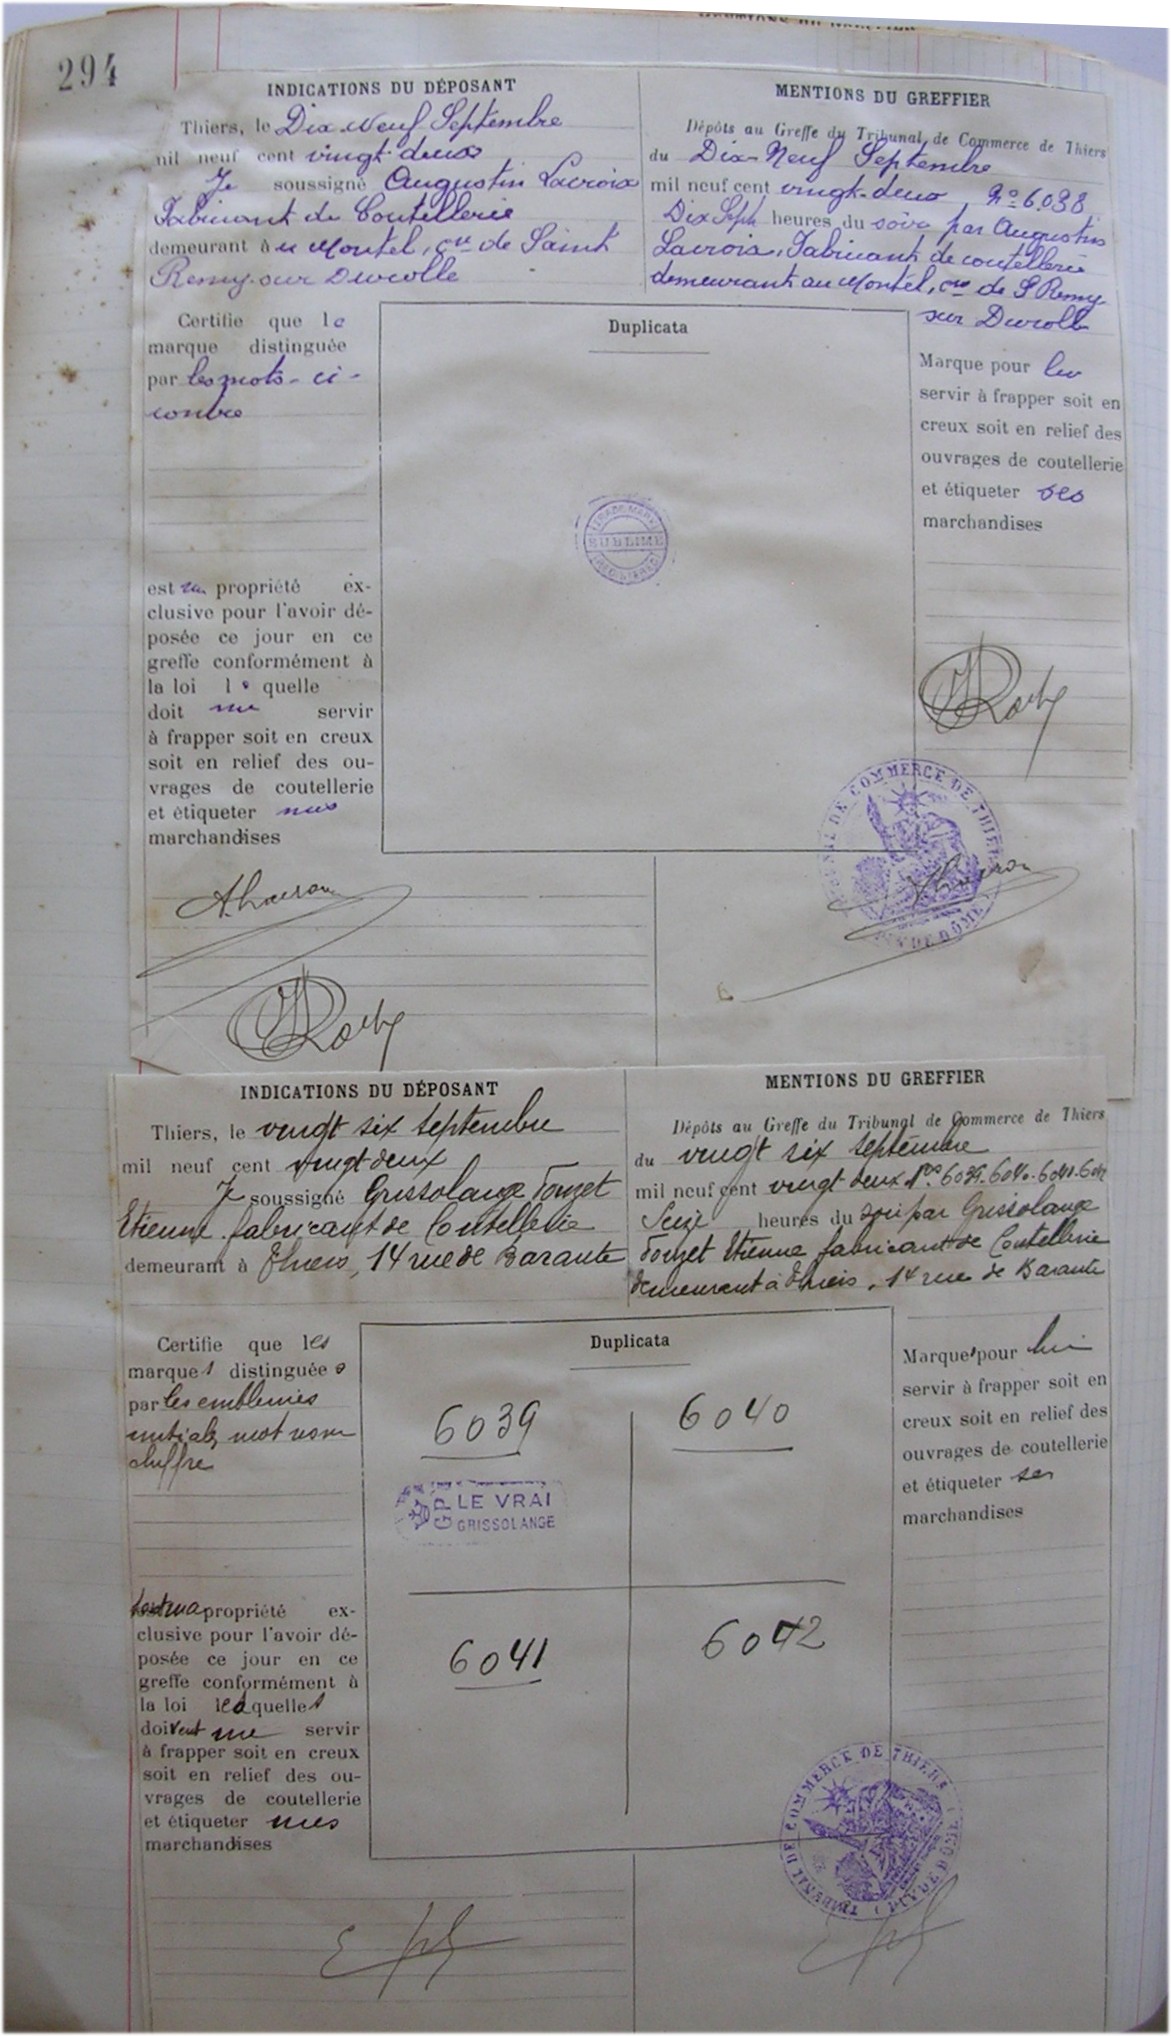 MENTIONS DU GREFFIER
294
INDICATIONS DU DÉPOSANT
Thiers, le Dix-Neuf Septembre
mil neuf cent vingt deux
Je soussigné Augustin Lacroix
Fabricant de Coutellerie
demeurant à u Montel, cne de Saint
Remy-sur Durolle
MENTIONS DU GREFFIER
Dépôts au Greffe du Tribunal de Commerce de Thiers
du Dix-Neuf Septembre
mil neuf cent vingt-deux No 6.038
Dix Sept heures du soir par Augustin
Lacroix, Fabricant de coutellerie
demeurant au Montel, cne de St Remy
sur Durolle
Certifie que la
marque distinguée
par les mots-ci-
contre
est ma propriété ex-
clusive pour l'avoir dé-
posée ce jour en ce
greffe conformément à
la loi laquelle
doit me servir
à frapper soit en creux
soit en relief des ou-
vrages de coutellerie
et étiqueter mes
marchandises
Duplicata
TRADE MARK
SUBLIME
REGISTERED
Marque pour lui
servir à frapper soit en
creux soit en relief des
ouvrages de coutellerie
et étiqueter ses
marchandises
TRIBUNAL DE COMMERCE DE THIERS
PUY DE DÔME
INDICATIONS DU DÉPOSANT
Thiers, le vingt six septembre
mil neuf cent vingt deux
Je soussigné Grissolange
Etienne fabricant de Coutellerie
demeurant à Thiers, 14 rue de Barante
MENTIONS DU GREFFIER
Dépôts au Greffe du Tribunal de Commerce de Thiers
du vingt six septembre
mil neuf cent vingt deux Nos 6039-6040-6041-6042
Seize heures du soir par Grissolange
Etienne fabricant de Coutellerie
demeurant à Thiers, 14 rue de Barante
Certifie que les
marques distinguées
par les emblèmes
initiales, mot nom
chiffre
sont ma propriété ex-
clusive pour l'avoir dé-
posée ce jour en ce
greffe conformément à
la loi lesquelles
doivent me servir
à frapper soit en creux
soit en relief des ou-
vrages de coutellerie
et étiqueter mes
marchandises
Duplicata
6039
6040
GP LE VRAI
GRISSOLANGE
6041
6042
Marques pour lui
servir à frapper soit en
creux soit en relief des
ouvrages de coutellerie
et étiqueter ses
marchandises
TRIBUNAL DE COMMERCE DE THIERS
(PUY DE DÔME)